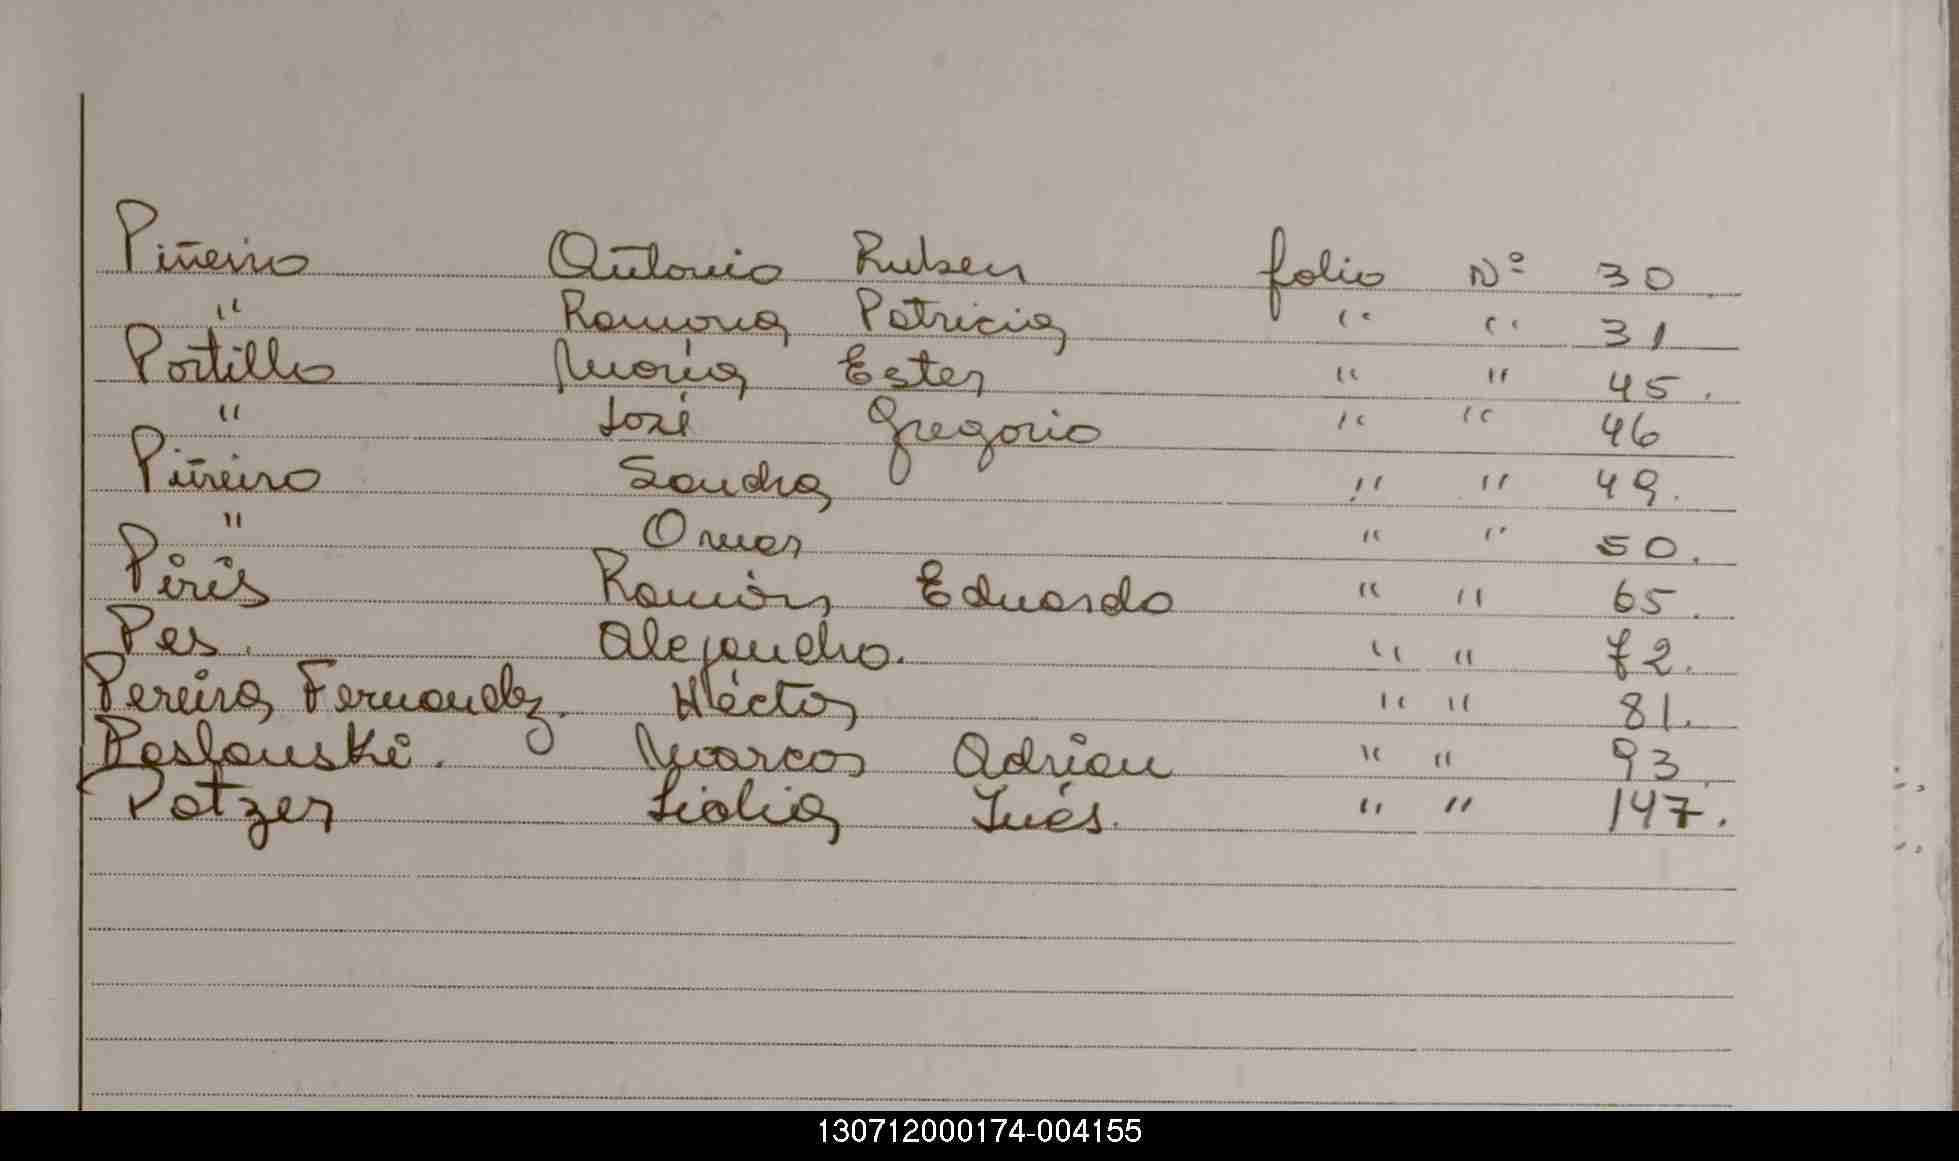 Piñeiro Antonio Ruben folio Nº 30
" Ramona Patricia " " 31
Portillo María Ester " " 45.
" José Gregorio " " 46
Piñeiro Sandra " " 49.
" Omar " " 50.
Piris Ramón Eduardo " " 65.
Pes. Alejandro. " " 72.
Pereira Fernandez. Héctor " " 81.
Poslouski. Marcos Adrian " " 93
Patzer Lidia Inés. " " 147.
130712000174-004155